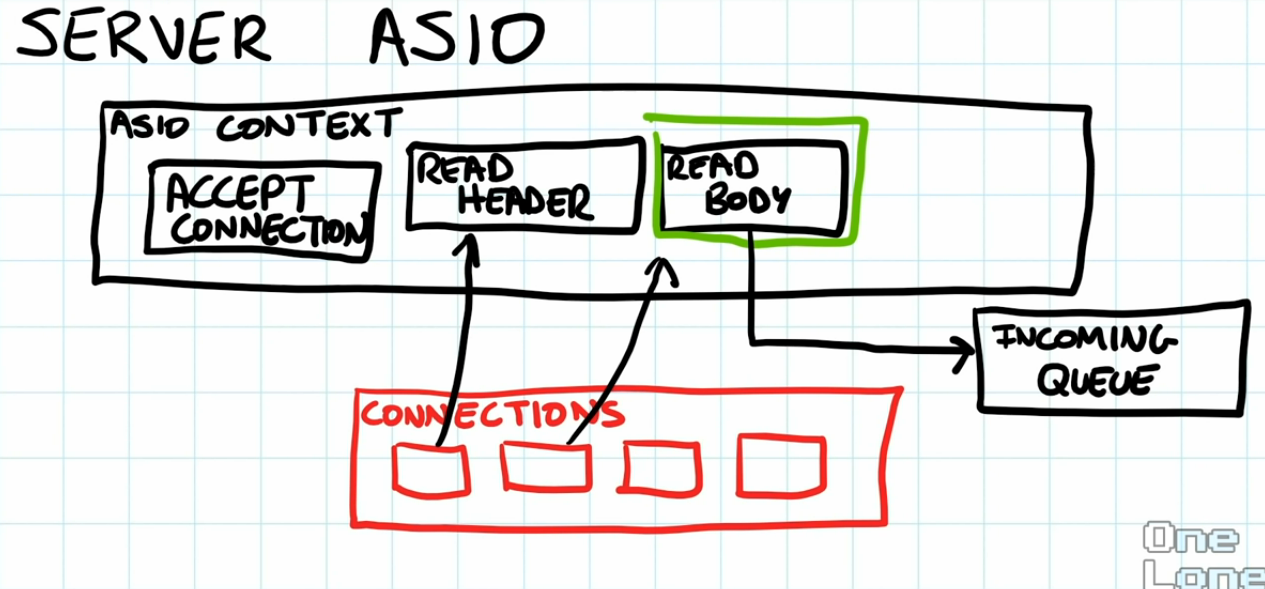 SERVER ASIO
ASIO CONTEXT
ACCEPT
CONNECTION
READ
HEADER
READ
BODY
INCOMING
QUEUE
CONNECTIONS
One
Lone